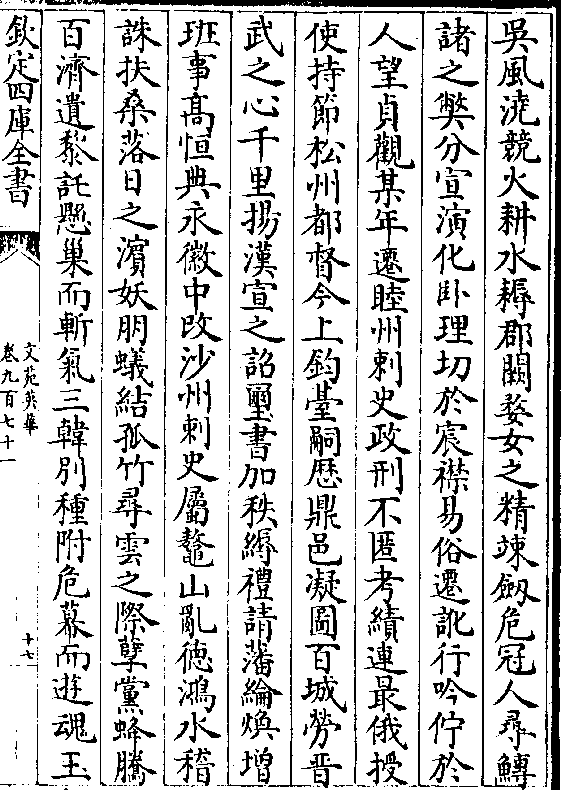 吳風澆競火耕水耨郡闕婺女之精竦劔危冠人尋鱄
諸之獘分宣演化卧理切於宸襟易俗遷訛行吟佇於
人望貞觀某年遷睦州刺史政刑不匿考績連最俄授
使持節松州都督今上鈞臺嗣歴鼎邑凝圖百城勞晋
武之心千里揚漢宣之詔璽書加秩縟禮請藩綸煥增
班事髙恒典永徽中改沙州刺史屬鼇山亂徳鴻水稽
誅扶桑落日之濵妖朋蟻結孤竹尋雲之際孽黨蜂騰
百濟遺黎託懸巢而斬氣三韓別種附危幕而遊魂玉
欽定四庫全書
文苑英華
卷九百七十一
十七